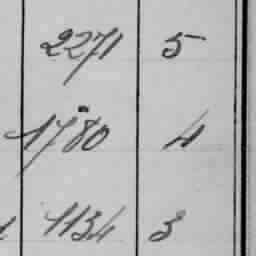 2271 5
1780 4
1134 3